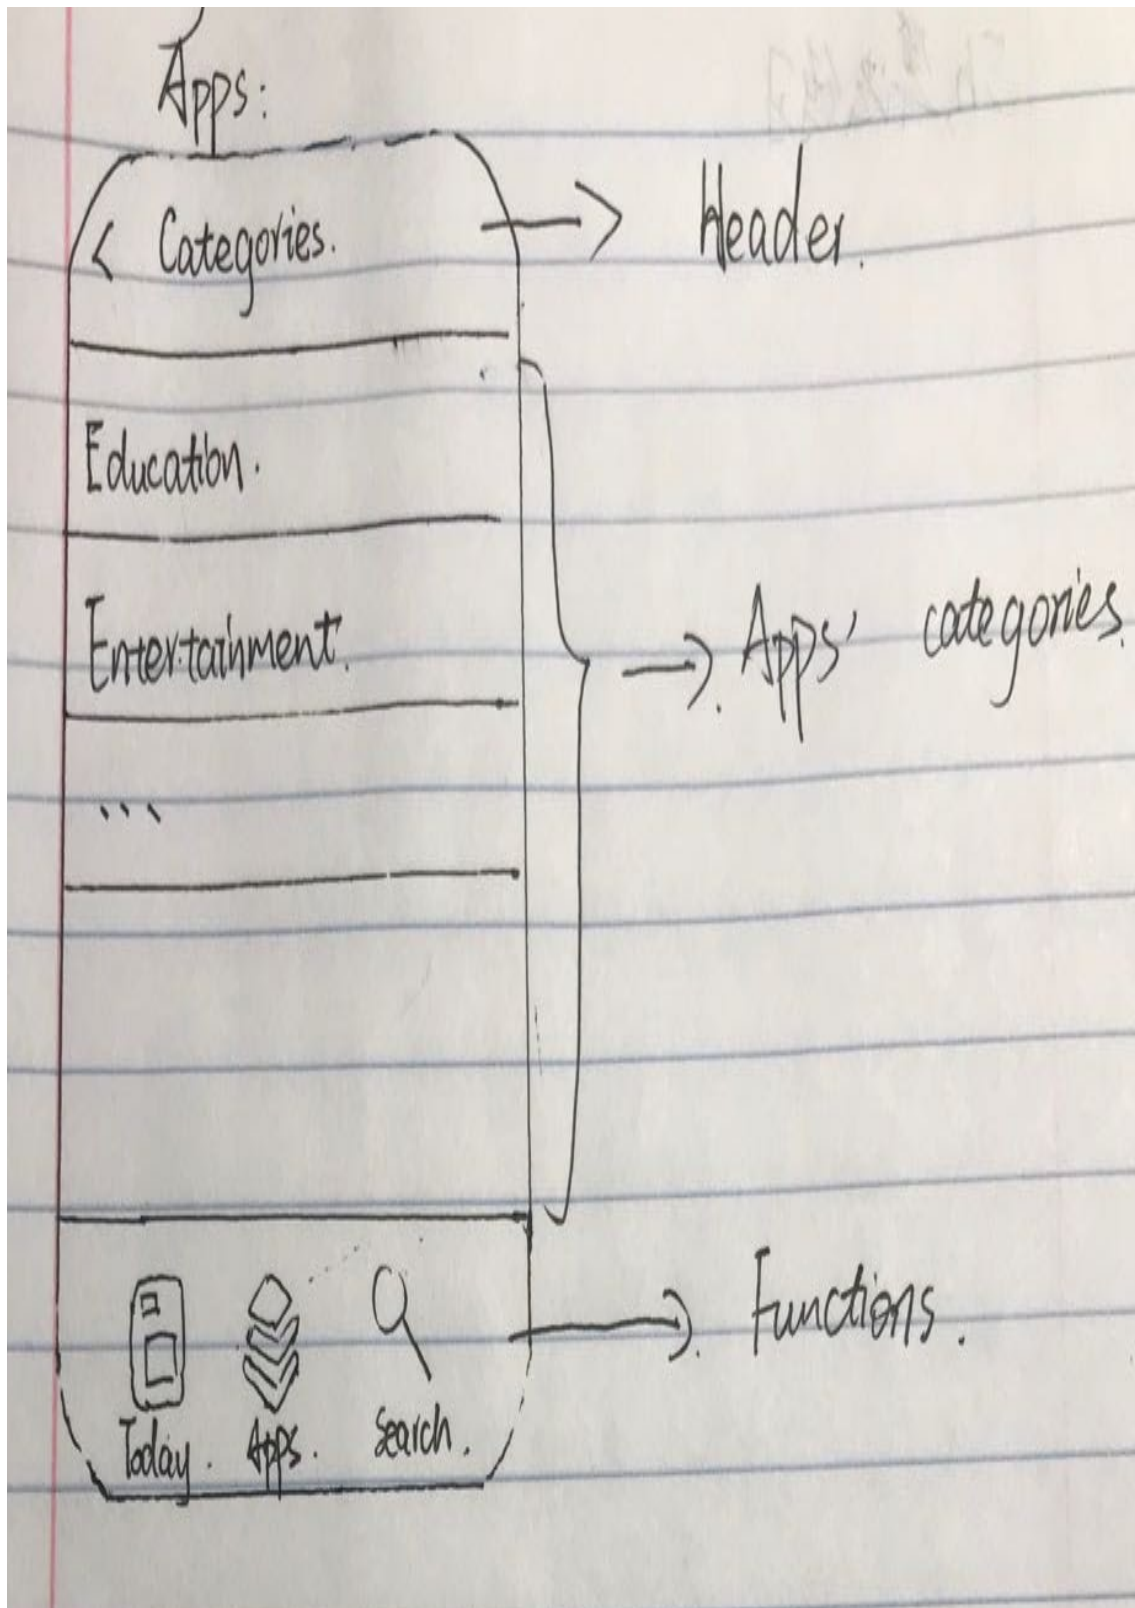 Apps:
< Categories. → Header.
Education.
Entertainment.
→ Apps' categories.
...
Today. Apps. Search. → Functions.